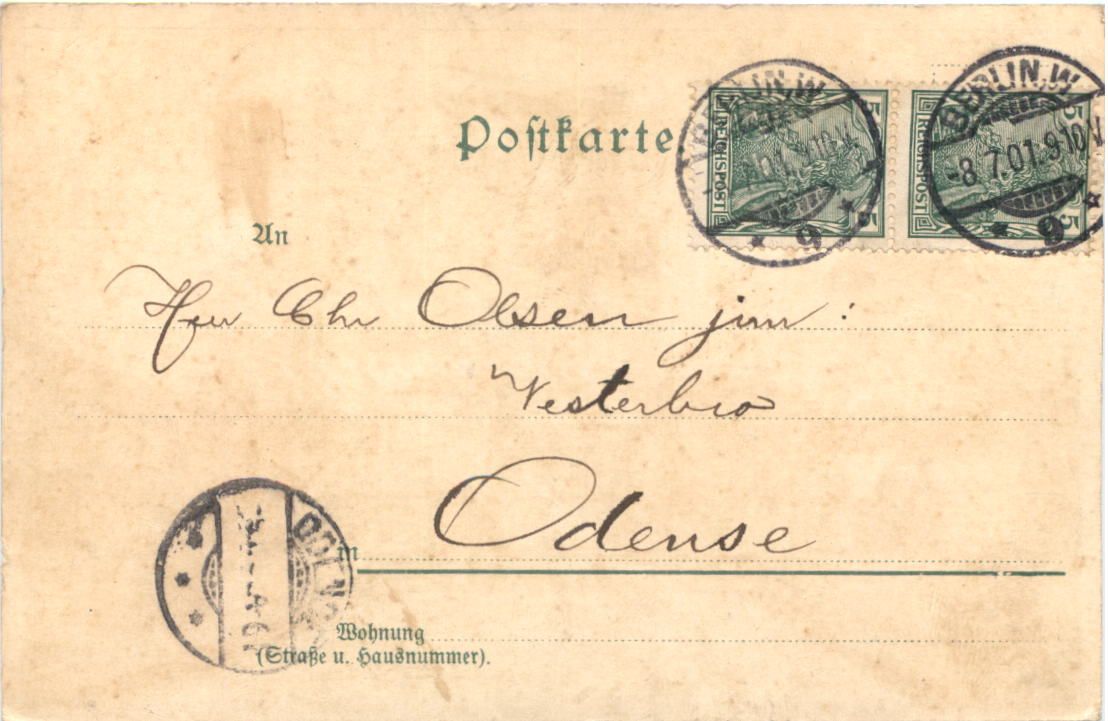 Postkarte
BERLIN.W 9
BERLIN.W -8.7.01.9-10V. 9
5 REICHSPOST 5
5 REICHSPOST 5
An
Herr Chr Olsen jun:
Vesterbro
in Odense
ODENSE
Wohnung
(Straße u. Hausnummer).